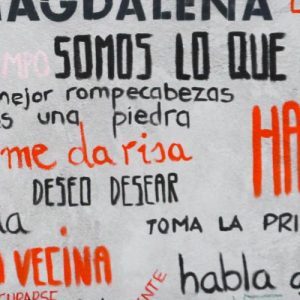 MAGDALENA
SOMOS LO QUE
mejor rompecabezas
una piedra
me da risa
DESEO DESEAR
TOMA LA PRI
VECINA
habla